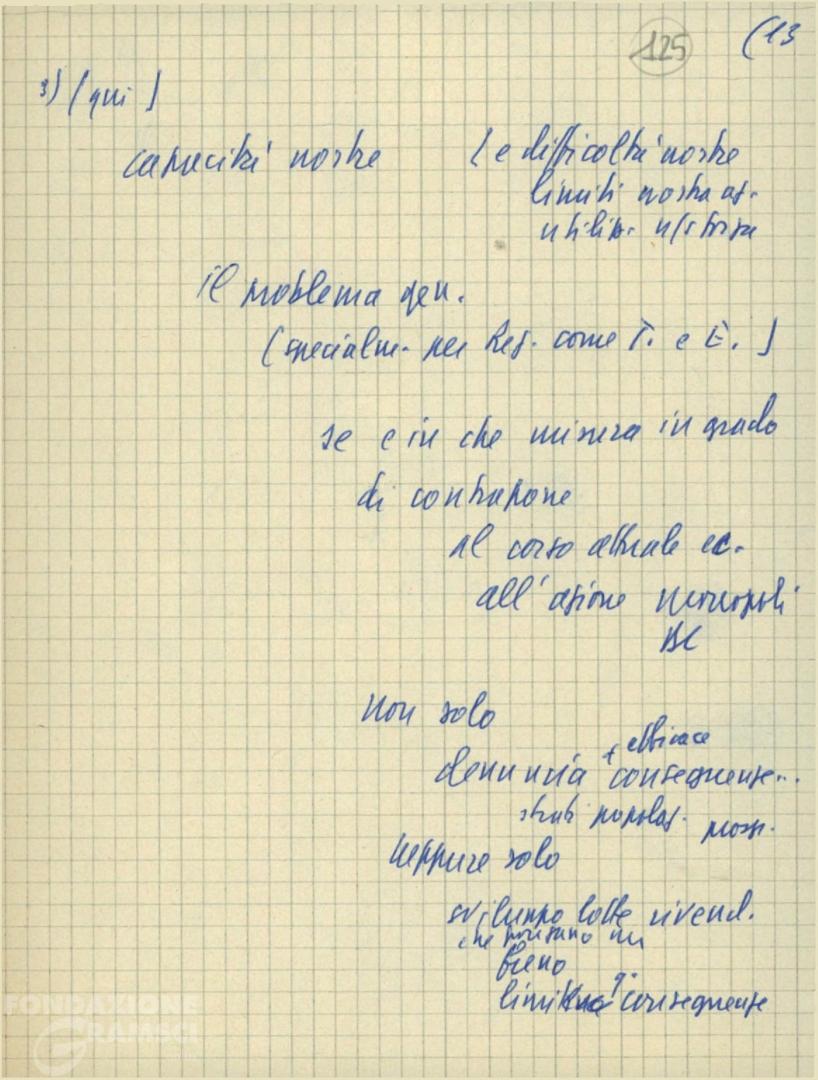 125 (13
3) (qui)
capacità nostre (e difficoltà nostre
limiti nostra az.
utiliz. ns forza
il problema gen.
(specialm. per Reg. come T. e E.)
se e in che misura in grado
di contrapporre
al corso attuale ec.
all'azione monopoli
DC
Non solo
denuncia + efficace conseguenze..
strati popolaz.
Neppure solo
sviluppo lotte rivend.
che pongano un
freno
conseguenze
FONDAZIONE
GRAMSCI